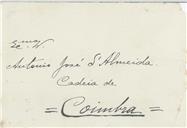 Exmo
Sr. 
Antonio José d'Almeida
Cadeia de
= Coimbra =